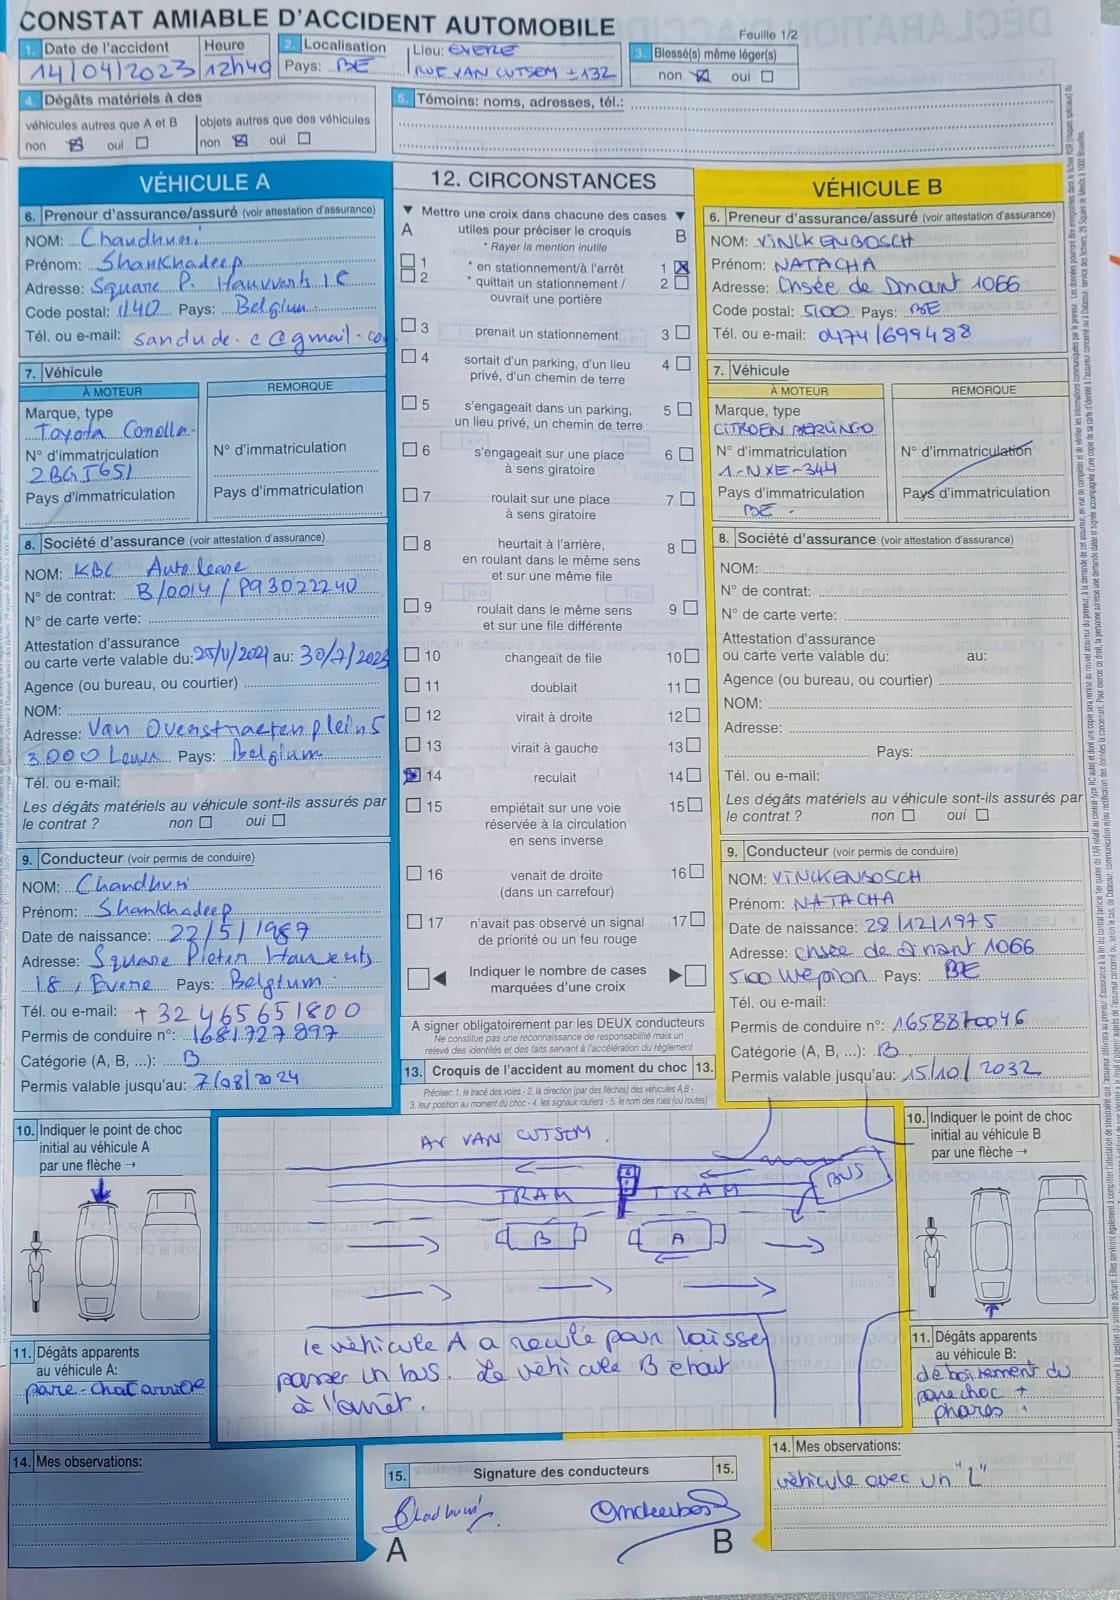 CONSTAT AMIABLE D'ACCIDENT AUTOMOBILE
Feuille 1/2
1. Date de l'accident Heure
14/04/2023 12h40
2. Localisation Lieu: EVERE
Pays: BE RUE VAN CUTSEM ± 132
3. Blessé(s) même léger(s)
non oui
4. Dégâts matériels à des
véhicules autres que A et B objets autres que des véhicules
non oui non oui
5. Témoins: noms, adresses, tél.:
VÉHICULE A
6. Preneur d'assurance/assuré (voir attestation d'assurance)
NOM: Chaudhuri
Prénom: Shankhadeep
Adresse: Square P. Hauwaerts 18
Code postal: 1140 Pays: Belgium
Tél. ou e-mail: sandude.cc@gmail.co
7. Véhicule
À MOTEUR REMORQUE
Marque, type
Toyota Corolla
N° d'immatriculation N° d'immatriculation
2BGJ651
Pays d'immatriculation Pays d'immatriculation
8. Société d'assurance (voir attestation d'assurance)
NOM: KBC Autolease
N° de contrat: B/0014/P93022240
N° de carte verte:
Attestation d'assurance
ou carte verte valable du: 25/11/2021 au: 30/7/2023
Agence (ou bureau, ou courtier)
NOM:
Adresse: Van Overstraetenplein 5
3000 Leuven Pays: Belgium
Tél. ou e-mail:
Les dégâts matériels au véhicule sont-ils assurés par
le contrat ? non oui
9. Conducteur (voir permis de conduire)
NOM: Chaudhuri
Prénom: Shankhadeep
Date de naissance: 22/5/1987
Adresse: Square Pieter Hauwaerts
18, Evere Pays: Belgium
Tél. ou e-mail: +32 465651800
Permis de conduire n°: 1681727897
Catégorie (A, B, ...): B
Permis valable jusqu'au: 7/08/2024
10. Indiquer le point de choc
initial au véhicule A
par une flèche →
11. Dégâts apparents
au véhicule A:
pare-choc arrière
14. Mes observations:
12. CIRCONSTANCES
Mettre une croix dans chacune des cases
A utiles pour préciser le croquis B
* Rayer la mention inutile
1 * en stationnement/à l'arrêt 1
2 * quittait un stationnement / 2
ouvrait une portière
3 prenait un stationnement 3
4 sortait d'un parking, d'un lieu 4
privé, d'un chemin de terre
5 s'engageait dans un parking, 5
un lieu privé, un chemin de terre
6 s'engageait sur une place 6
à sens giratoire
7 roulait sur une place 7
à sens giratoire
8 heurtait à l'arrière, 8
en roulant dans le même sens
et sur une même file
9 roulait dans le même sens 9
et sur une file différente
10 changeait de file 10
11 doublait 11
12 virait à droite 12
13 virait à gauche 13
14 reculait 14
15 empiétait sur une voie 15
réservée à la circulation
en sens inverse
16 venait de droite 16
(dans un carrefour)
17 n'avait pas observé un signal 17
de priorité ou un feu rouge
Indiquer le nombre de cases
marquées d'une croix
A signer obligatoirement par les DEUX conducteurs
Ne constitue pas une reconnaissance de responsabilité mais un
relevé des identités et des faits servant à l'accélération du règlement
13. Croquis de l'accident au moment du choc 13.
Préciser: 1. le tracé des voies - 2. la direction (par des flèches) des véhicules A,B -
3. leur position au moment du choc - 4. les signaux routiers - 5. le nom des rues (ou routes)
AV VAN CUTSEM.
TRAM TRAM BUS
B A
le véhicule A a reculé pour laisser
passer un bus. Le véhicule B était
à l'arrêt.
15. Signature des conducteurs 15.
A B
VÉHICULE B
6. Preneur d'assurance/assuré (voir attestation d'assurance)
NOM: VINCKENBOSCH
Prénom: NATACHA
Adresse: Chsée de Dinant 1066
Code postal: 5100 Pays: BE
Tél. ou e-mail: 0474/699488
7. Véhicule
À MOTEUR REMORQUE
Marque, type
CITROEN BERLINGO
N° d'immatriculation N° d'immatriculation
1-NXE-344
Pays d'immatriculation Pays d'immatriculation
BE
8. Société d'assurance (voir attestation d'assurance)
NOM:
N° de contrat:
N° de carte verte:
Attestation d'assurance
ou carte verte valable du: au:
Agence (ou bureau, ou courtier)
NOM:
Adresse:
Pays:
Tél. ou e-mail:
Les dégâts matériels au véhicule sont-ils assurés par
le contrat ? non oui
9. Conducteur (voir permis de conduire)
NOM: VINCKENBOSCH
Prénom: NATACHA
Date de naissance: 28/12/1975
Adresse: chsée de Dinant 1066
5100 Wépion Pays: BE
Tél. ou e-mail:
Permis de conduire n°: 1658870046
Catégorie (A, B, ...): B
Permis valable jusqu'au: 15/10/2032
10. Indiquer le point de choc
initial au véhicule B
par une flèche →
11. Dégâts apparents
au véhicule B:
déboîtement du
parechoc +
phares
14. Mes observations:
véhicule avec un "L"